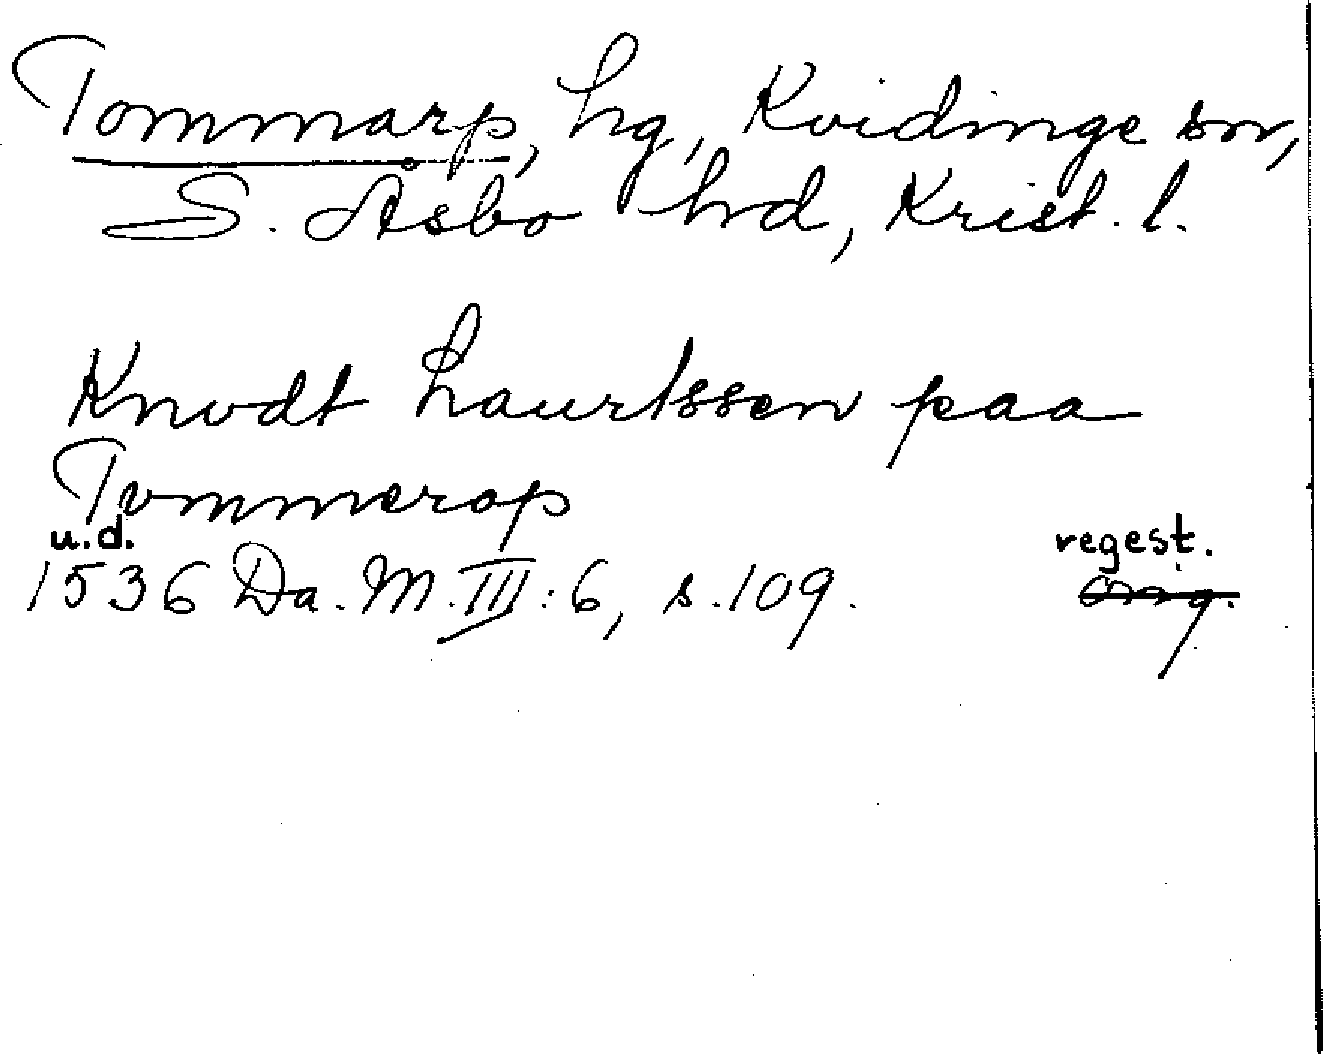 Tommarp, hg, Kvidinge sn,
S. Åsbo hd, Krist. l.
Knudt Laurtssen paa
Tummerop
u.d. regest.
1536 Da. M. III: 6, s. 109.